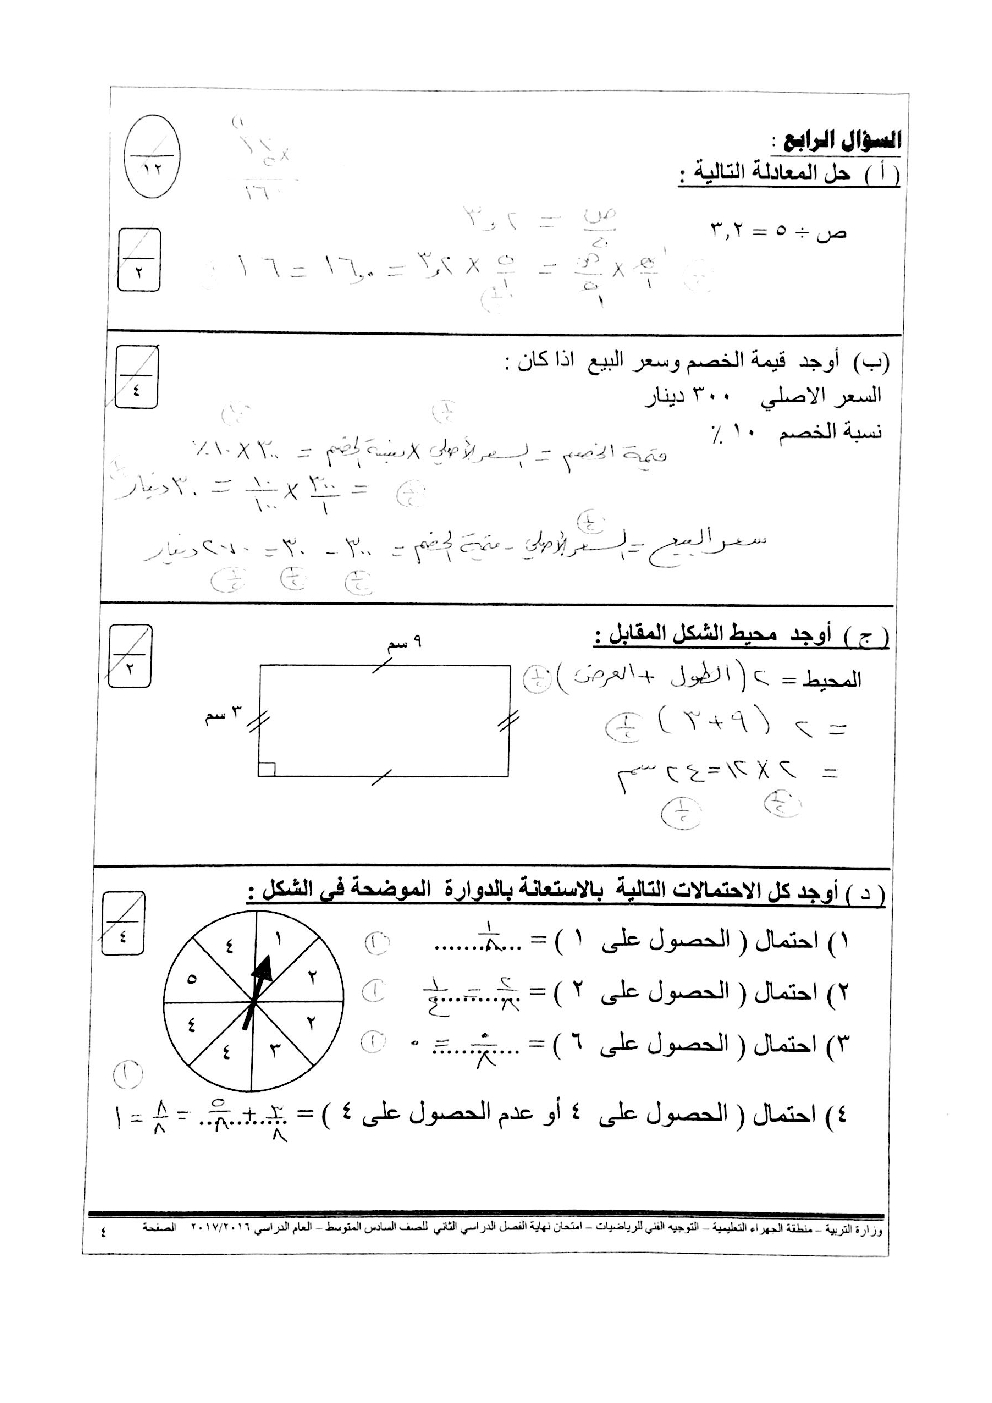 السؤال الرابع :
١٢
( أ ) حل المعادلة التالية :
ص ÷ ٥ = ٣,٢
ص/٥ = ٣,٢
٢
٥/١ × ص/٥ = ٥/١ × ٣,٢ = ١٦,٠ = ١٦
(ب) أوجد قيمة الخصم وسعر البيع اذا كان :
٤
السعر الاصلي ٣٠٠ دينار
نسبة الخصم ١٠ ٪
قيمة الخصم = السعر الأصلي × نسبة الخصم = ٣٠٠ × ١٠٪
= ٣٠٠/١ × ١٠/١٠٠ = ٣٠ دينار
سعر البيع = السعر الأصلي - قيمة الخصم = ٣٠٠ - ٣٠ = ٢٧٠ دينار
( ج ) أوجد محيط الشكل المقابل :
٢
٩ سم
٣ سم
المحيط = ٢ ( الطول + العرض )
= ٢ ( ٩ + ٣ )
= ٢ × ١٢ = ٢٤ سم
( د ) أوجد كل الاحتمالات التالية بالاستعانة بالدوارة الموضحة في الشكل :
٤
١) احتمال ( الحصول على ١ ) = ١/٨
٢) احتمال ( الحصول على ٢ ) = ٢/٨ = ١/٤
٣) احتمال ( الحصول على ٦ ) = ٠/٨ = ٠
٤) احتمال ( الحصول على ٤ أو عدم الحصول على ٤ ) = ٣/٨ + ٥/٨ = ٨/٨ = ١
١
٢
٢
٣
٤
٤
٥
٤
وزارة التربية – منطقة الجهراء التعليمية – التوجيه الفني للرياضيات – امتحان نهاية الفصل الدراسي الثاني للصف السادس المتوسط – العام الدراسي ٢٠١٧/٢٠١٦ الصفحة ٤